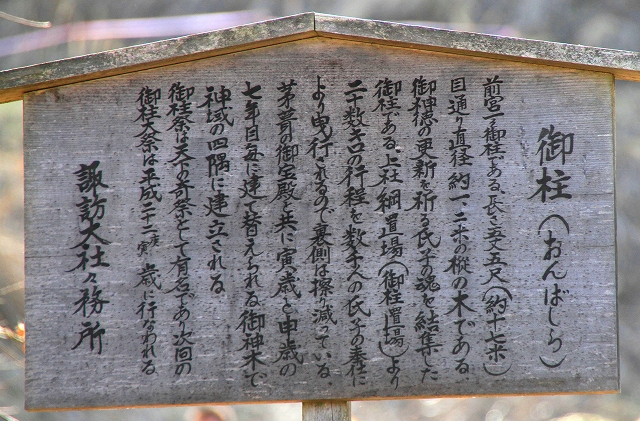 御柱(おんばしら)
前宮一之御柱である、長さ五丈五尺(約十七米)
目通り直径約一、二米の樅の木である、
御神徳の更新を祈る氏子の魂を結集した
御柱である、上社綱置場(御柱置場)より
二十数キロの行程を数千人の氏子の奉仕に
より曳行されるので裏側は擦り減っている、
茅葺の御宝殿と共に寅歳と申歳の
七年目毎に建て替えられる御神木で
神域の四隅に建立される、
御柱祭は天下の奇祭として有名であり次回の
御柱大祭は平成二十二年寅歳に行なわれる、
諏訪大社々務所